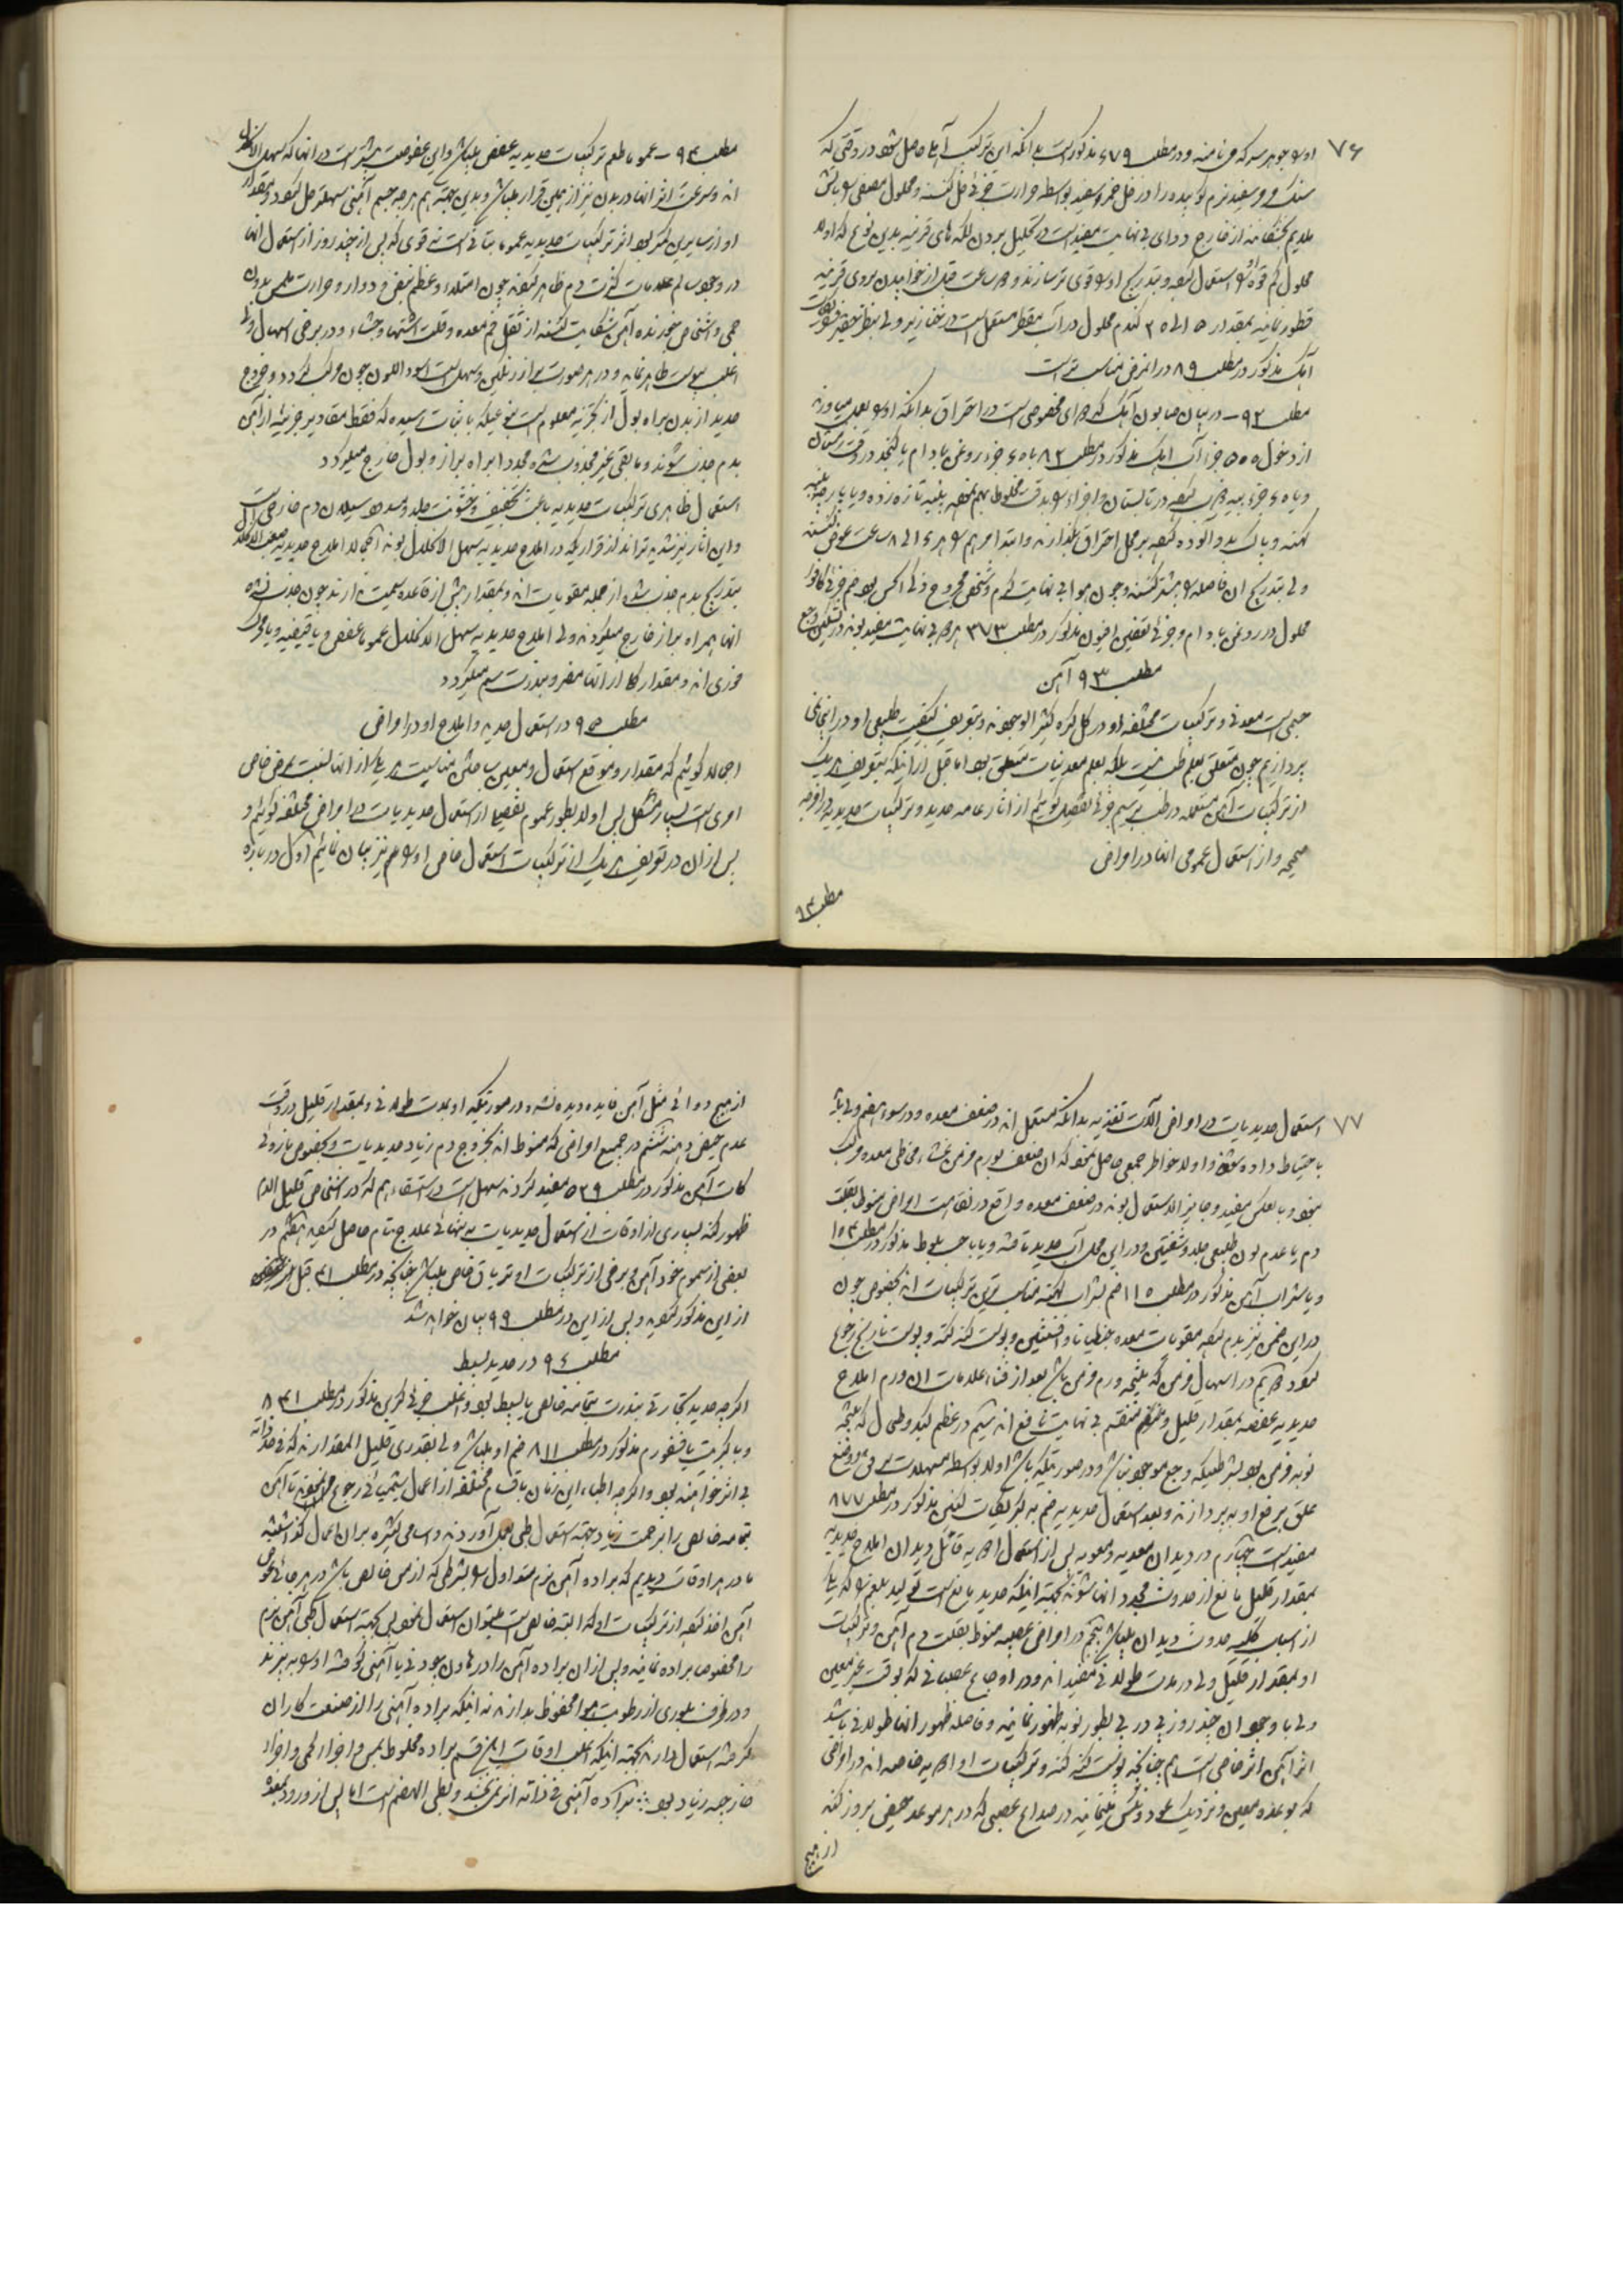 ۷۶
او را جوهر سرکه می نامند و در مطلب ۶۷۹ مذکور است بدانکه این ترکیب آهک حاصل شود در وقتی که
سنک مرمر سفید نرم کوبیده را در خل خمر سفید بواسطه حرارت جزئی حل کنند و محلول مصفی را بآتش
ملایم خشکانند از خارج دوای بی نهایت مفید است در تحلیل بردن لکه های قرنیه بدین نوع که اولا
محلول کم قوه او را استعمال نموده و بتدریج او را قوی تر سازند و هر ساعت قبل از خوابیدن بروی قرنیه
قطور نمایند بمقدار ۱۵ الی ۲۵ گندم محلول در آب مقطر مستعمل است در خنازیر ولی بنظر حقیر
آهک مذکور در مطلب ۸۹ در این مرض مناسب تر است
مطلب ۹۲ – در بیان صابون آهک که دوای مخصوصی است در احتراق بدانکه او را بعمل میاورند
از دخول ۵۰۰ جزء آب آهک مذکور در مطلب ۸۲ با ۶۰ جزء روغن بادام یا کنجد در وقت زمستان
و با ۶۰ جزء پیه در تابستان و اجزاء را بدقت مخلوط بهم نموده پنبه تازه زده و یا پارچه پنبه
کهنه و پاک بدو آلوده نموده بر محل احتراق بگذارند و ابتدا مرهم را هر ۶ الی ۸ ساعت عوض کنند
ولی بتدریج ان فاصله را بیشتر کنند و چون هوا بی نهایت گرم و شخص مجروح ذکی الحس بود ضم جزئی کافور
محلول در روغن بادام و جزئی تعفین افیون مذکور در مطلب ۳۷۳ مرهم بی نهایت مفید بود در تسکین وجع
مطلب ۹۳ آهن
جسمی است معدنی و ترکیبات مختلفه او در کل کره کثیر الوجودند و بتعریف کیفیت طبیعی او در اینجا نمی
پردازیم چون متعلق بعلم طب نیست بلکه بعلم معدنیات متعلق بود اما قبل از اینکه بتعریف هر یک
از ترکیبات آهن مستعمله در طب برسیم جزئی تفصیل گوئیم از آثار عامه حدید و ترکیبات حدیدیه در مزاج
صحیحه و از استعمال عمومی انها در امراض
مطلب ۹۴
مطلب ۹۴ – عموما طعم ترکیبات حدیدیه عفص میباشد و این عفوصت بیشتر است در انها که سهل الانحلال
اند و سرعت اثر انها در بدن نیز از همین قرار میباشد و بدین جهة هم هر چه جسم آهنی سهلتر حل شود بمقدار
او از سایرین کمتر بود اثر ترکیبات حدیدیه عموما بتأنی است نه قوی که پس از چند روز از استعمال انها
در وجود سالم علامات کثرت دم ظاهر شوند چون امتلاء و عظم نبض و دوار و حرارت ملمس بدون
حمی و اشخاص خورنده آهن شکایت کنند از ثقل فم معده و قلت اشتها و جشاء و در برخی اسهال ولی
اغلب یبوست ظاهر نماید و در هر صورت براز رنگین و سهل است اسود اللون چون مرکب گردد و خروج
حدید از بدن براه بول از تجزیه معلوم است بنوعیکه باثبات رسیده که فقط مقادیر جزئیه از آهن
بدم جذب شوند و مابقی غیر مجذوب شده مجددا براه براز و بول خارج میگردد
استعمال ظاهری ترکیبات حدیدیه باعث تجفیف و خشونت جلد و سد سیلان دم خارجی است
و این آثار نیز شدیدتراند از قراریکه در املاح حدیدیه سهل الانحلال بوند اجمالا املاح حدیدیه صعب الانحلال
بتدریج بدم جذب شده از جمله مقویات اند و بمقدار بیش از قاعده سمیت ندارند چون جذب نشده
انها بهمراه براز خارج میگردند ولی املاح حدیدیه سهل الانحلال عموما عفص و یا قابضه و یا محرک
فوری اند و بمقدار کلی از انها مضر و بندرت سم میگردد
مطلب ۹۵ در استعمال حدید و املاح او در امراض
اجمالا گوئیم که مقدار و موقع استعمال و معین ساختن مناسبت هر یک از انها نسبت بمرض خاص
امری است بسیار مشکل پس اولا بطور عموم تفصیل از استعمال حدیدیات در امراض مختلفه گوئیم و
پس از ان در تعریف هر یک از ترکیبات استعمال خاص او را هم نیز بیان نمائیم اول در باره
۷۷
استعمال حدیدیات در امراض آلات تغذیه بدانکه مستعمل اند در ضعف معده و در سوء هضم ولی باید
باحتیاط داده شوند و اولا خاطر جمعی حاصل نمود که ان ضعف بورم مزمن غشاء مخاطی معده مرکب
نبود و بالعکس مفید و جایز الاستعمال بوند در ضعف معده واقع در نقاهت امراض منوط بقلت
دم یا عدم لون طبیعی جلد و شفتین و در این محل آب حدید تافته و یا با حب بلوط مذکور در مطلب ۱۵۴
و یا شراب آهن مذکور در مطلب ۱۱۵ ضم بشراب کهنه مناسب ترین ترکیبات اند بخصوص چون
در این ضمن نیز بدم نموده مقویات معده جنطیانا و افسنتین و پوست کنه کنه و پوست نارنج رجوع
نمود دویم در اسهال مزمن که نتیجه ورم مزمن باشد بعد از فناء علامات ان ورم املاح
حدیدیه عفصه بمقدار قلیل و منقسم بی نهایت نافع اند سیم در عظم کبد و طحال که نتیجه
نوبه مزمن بود بشرطیکه وجع موجود نباشد و در صورتیکه باشد اولا بواسطه مسهلات مرض وضع
علق برفع او بپردازند و بعد استعمال حدیدیه ضم به کبریتات کنین مذکور در مطلب ۸۷۷
مفید است چهارم در دیدان معدیه و معویه پس از استعمال ادویه قاتل دیدان املاح حدیدیه
بمقدار قلیل مانع از حدوث مجدد انها شوند بجهة اینکه حدید مانع است تولید بلغم را که یک
از اسباب کلیه حدوث دیدان میباشد پنجم در امراض عصبیه منوط بقلت دم آهن و ترکیبات
او بمقدار قلیل ولی در مدت طولانی مفید اند و در اوجاع عصبانی که بوقت غیر معین
ولی با وجود ان چند روز پی در پی بطور نوبه ظهور نمایند و فاصله ظهور انها طولانی باشد
اثر آهن اثر خاصی است هم چنانچه پوست کنه کنه و ترکیبات او ادویه خاصه اند در امراض
که بوعده معین و نزدیک عود و نکس مینمایند در صداع عصبی که در هر موعد حیض بروز کند
از هیچ
از هیچ دوائی مثل آهن فایده دیده نشد و در صورتیکه او بمدت طولانی و بمقدار قلیل در وقت
عدم حیض دهند ششم در جمیع امراض که منوط اند بخروج دم زیاد حدیدیات و بخصوص بازوئی
کات آهن مذکور در مطلب ۵۳۹ مفید گردند سهل است در استسقاء هم که در اشخاص قلیل الدم
ظهور کند بسیاری از اوقات از استعمال حدیدیات بتنهائی علاج تمام حاصل نموده هفتم در
بعضی از سموم خود آهن و برخی از ترکیبات او تریاق خاص میباشد چنانچه در مطلب ۴۱ قبل
از این مذکور نموده و پس از این در مطلب ۹۹ بیان خواهد شد
مطلب ۹۶ در حدید بسیط
اگرچه حدید تجارتی بندرت بتمامه خالص یا بسیط بود و اغلب جزئی کربن مذکور در مطلب ۸۴۱
و با کبریت یا فسفورم مذکور در مطلب ۸۱۱ ضم او میباشد ولی بقدری قلیل المقدارند که فی حد ذاته
بی اثر خواهند بود و اگرچه اطباء این زمان باقسام مختلفه از اعمال شیمیائی رجوع نموده تا آهن
بتمامه خالص را بزحمت زیاد بجهة استعمال طبی بعمل آوردند و اسامی کثیره بر ان اعمال گذاشتند
ما در هر اوقات دیدیم که براده آهن نرم متداول را بشرطی که از مس خالص باشد در هر جا بعوض
آهن اخذ نموده از ترکیبات او که البته خالص است میتوان استعمال نمود پس بجهة استعمال طبی آهن نرم
را مخصوصا براده نمایند و پس از ان براده آهن را در هاون چودنی یا آهنی کوفته او را به پزند
و در ظرف بلوری از رطوبت هوا محفوظ بدارند نه اینکه براده آهنی را از صنعت کاران
گرفته استعمال دارند بجهة اینکه اغلب اوقات این قسم براده مخلوط بمس و اجزاء کمی و اجزاء
خارجه زیاد بود ∴ براده آهنی فی ذاته اثر نمی بخشد و بطی الهضم است اما پس از ورود بمعده